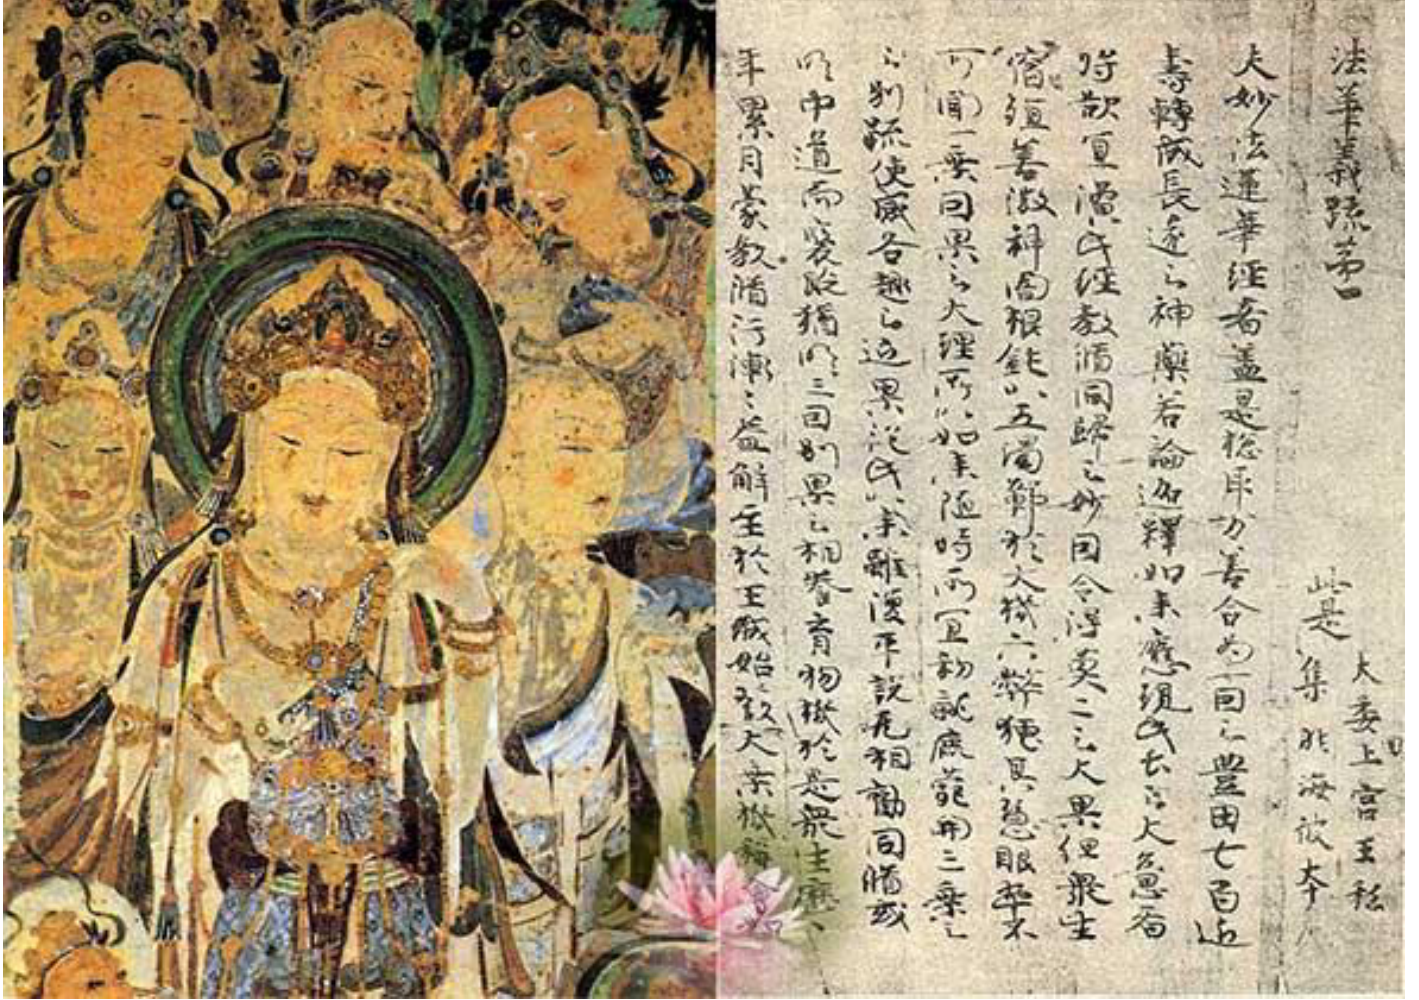 法華義疏第一
此是
大委国上宮王私
集非海彼本
夫妙法蓮華經者蓋是惣取万善合為一因之豊田七百近
壽轉成長遠之神藥若論迦釋如来應現此土之大意者
將欲宜演此經教脩同歸之妙因令得莫二之大果但衆生
宿殖善微神闇根鈍以五濁鄣於大機六弊掩其慧眼卒不
可聞一乗因果之大理所以如来隨時所宜初就鹿苑開三乗之
之別疏使感各趣之近果從此以来雖復平説无相勸同脩或
明中道而褒貶猶明三因別果之相養育物機於是衆生歷
年累月蒙教脩行漸〻益解至於王城始發大乗機稱